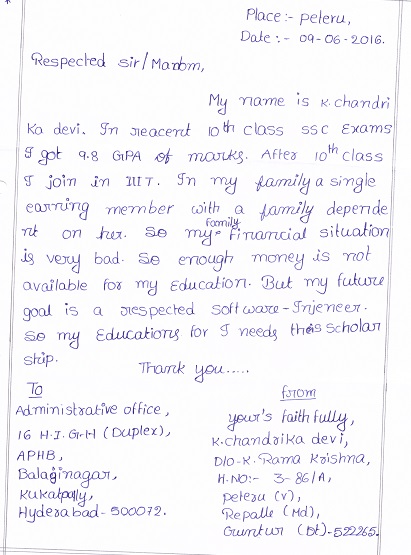 Place:- peleru,
Date:- 09-06-2016.
Respected sir/Mardm,
My name is K.chandri
ka devi. In reacent 10th class ssc Exams
I got 9.8 GPA of marks. After 10th class
I join in IIIT. In my family a single
earning member with a family depende
nt on her. So my family Financial situation
is very bad. So enough money is not
available for my Education. But my future
goal is a respected software-Injeneer.
So my Educations for I needs this scholar
ship.
Thank you.....
To
Administrative office,
16 H.I.G.H (Duplex),
APHB,
Balaginagar,
Kukatpally,
Hyderabad-500072.
from
your's faithfully,
K.chandrika devi,
D/O-K. Rama Krishna,
H.NO:- 3-86/A,
peteru (v),
Repalle (Md),
Guntur (Dt).522265.